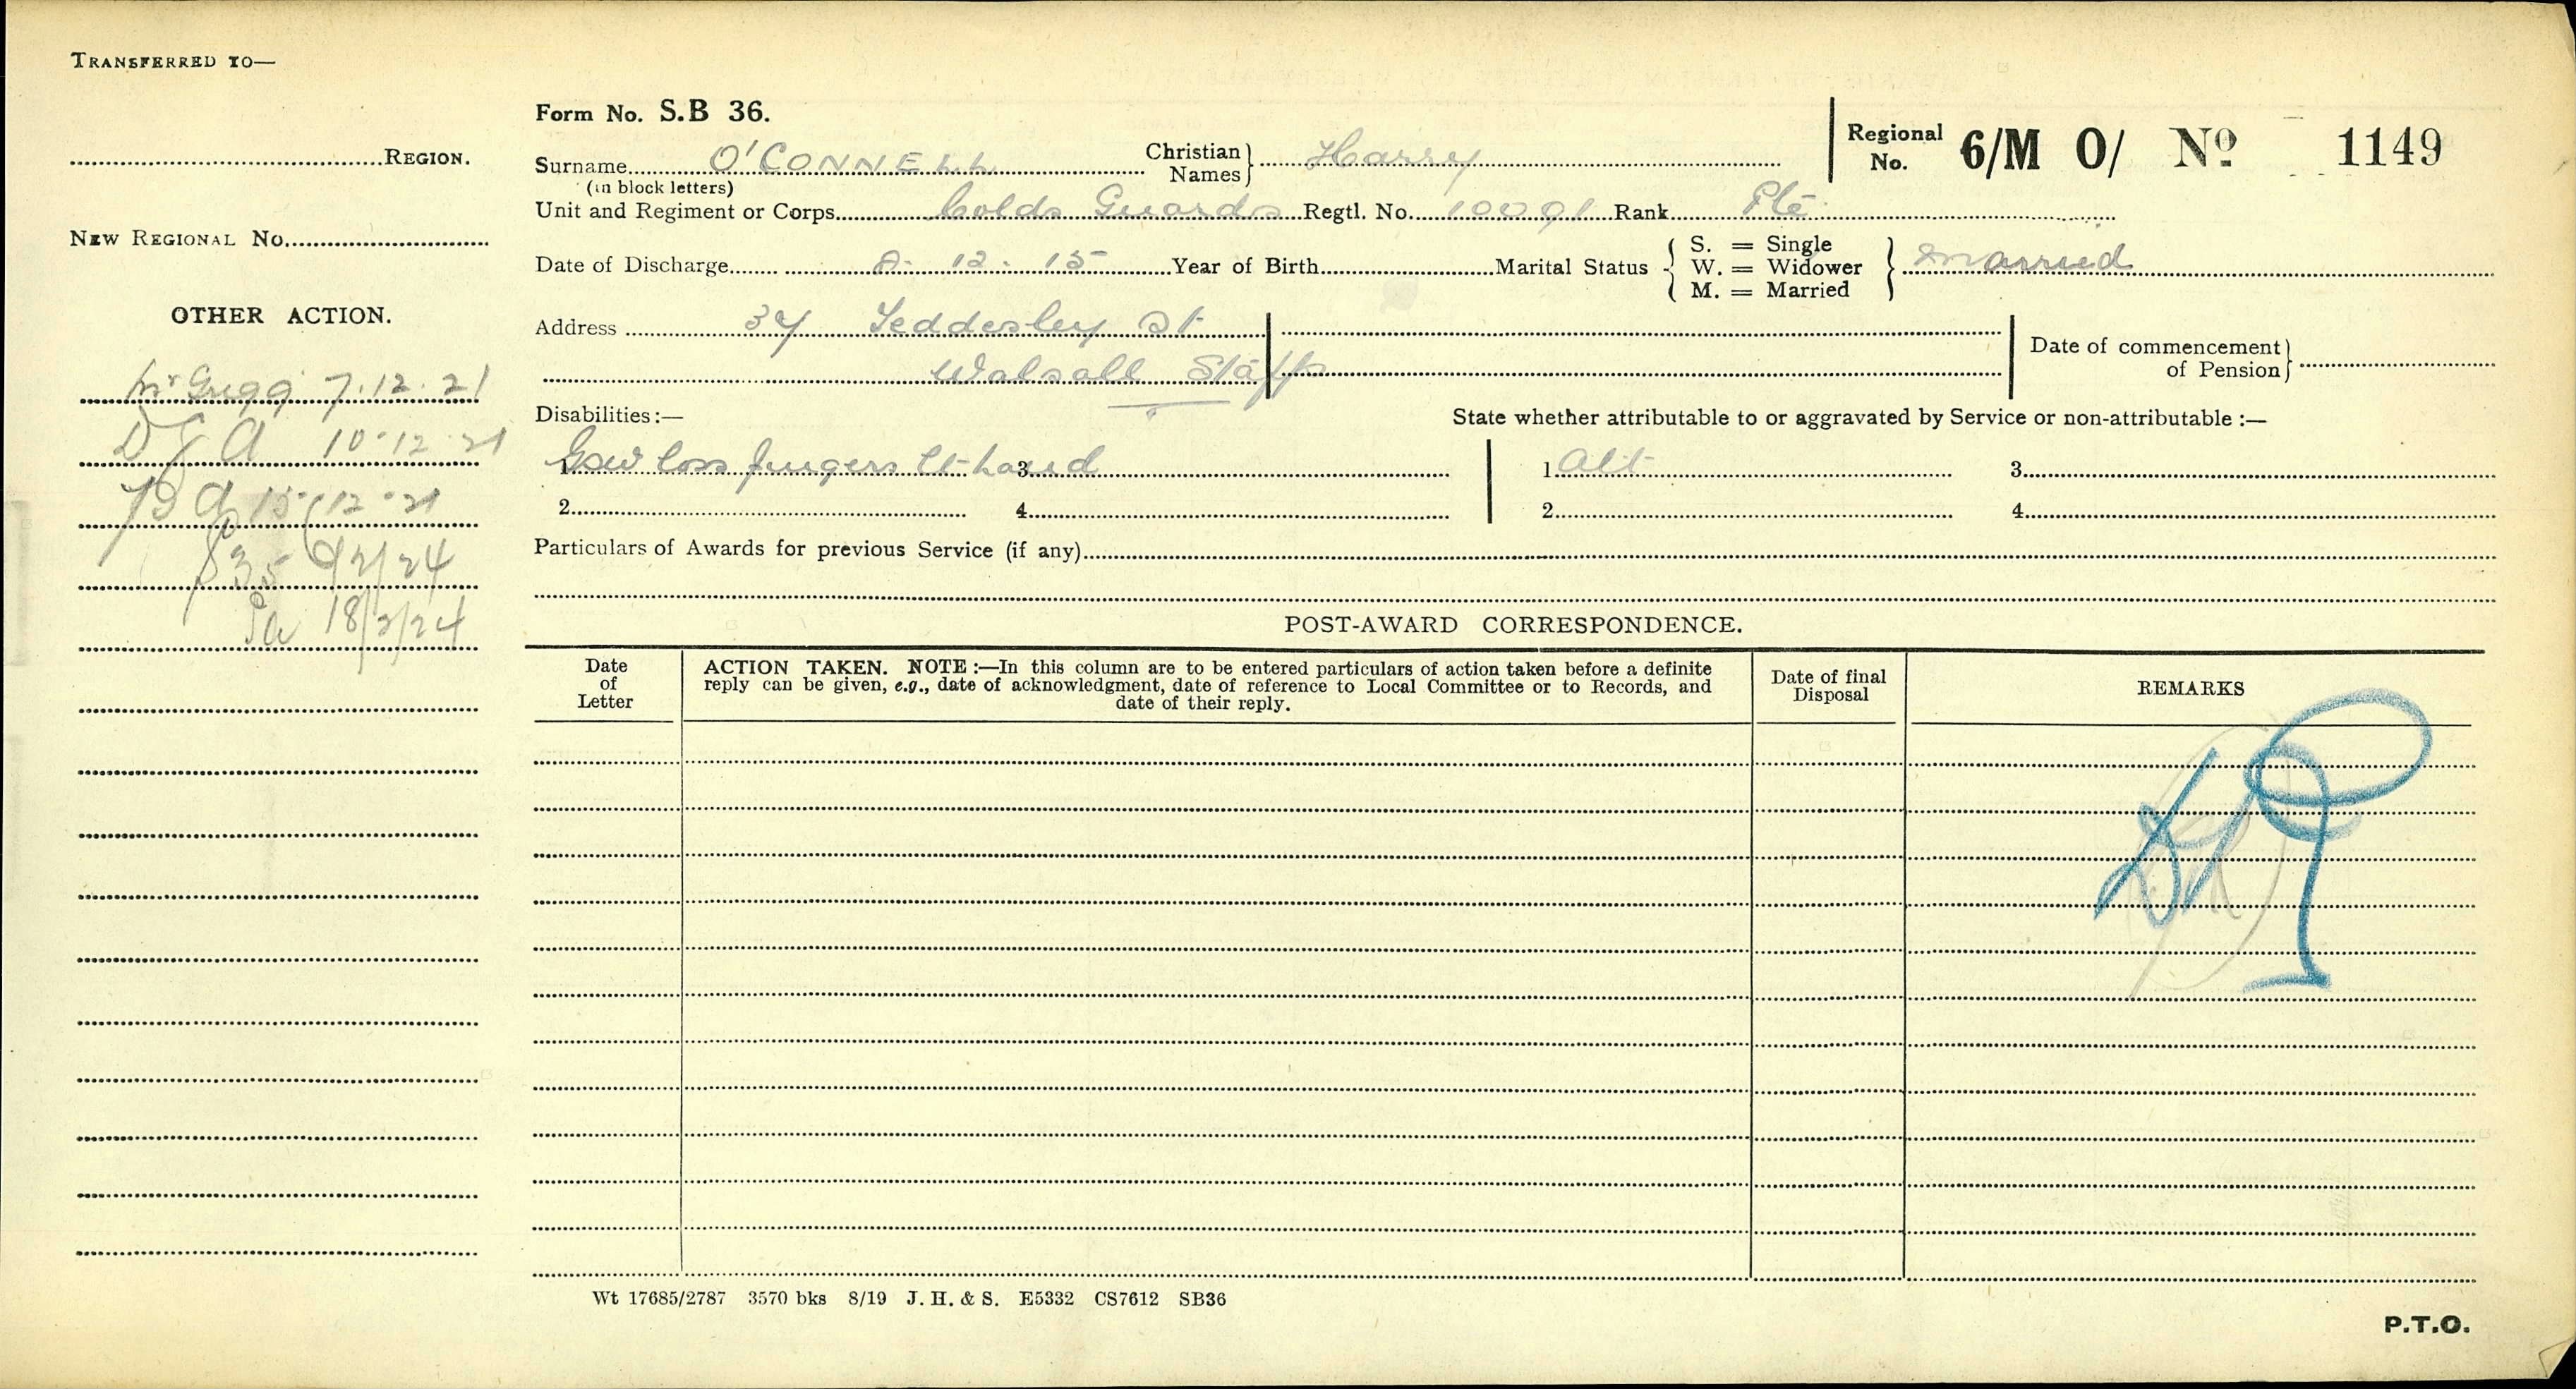 TRANSFERRED TO—
REGION.
NEW REGIONAL No.
OTHER ACTION.
Mr Gregg 7.12.21
10.12.21
15.12.21
835 9/2/24
Pa 18/2/24
Form No. S.B 36.
Surname O'CONNELL Christian Names Harry
(in block letters)
Regional No. 6/M O/ No 1149
Unit and Regiment or Corps Colds Guards Regtl. No. 10091 Rank Pte
Date of Discharge 12. 15 Year of Birth Marital Status S. = Single W. = Widower M. = Married married
Address 34 Teddesley St
Walsall Staffs
Date of commencement of Pension
Disabilities :— State whether attributable to or aggravated by Service or non-attributable :—
1. Gsw loss fingers lt hand 3. 1 Att 3.
2. 4. 2. 4.
Particulars of Awards for previous Service (if any)
POST-AWARD CORRESPONDENCE.
Date of Letter
ACTION TAKEN. NOTE :—In this column are to be entered particulars of action taken before a definite
reply can be given, e.g., date of acknowledgment, date of reference to Local Committee or to Records, and
date of their reply.
Date of final Disposal
REMARKS
Wt 17685/2787 3570 bks 8/19 J. H. & S. E5332 CS7612 SB36
P.T.O.